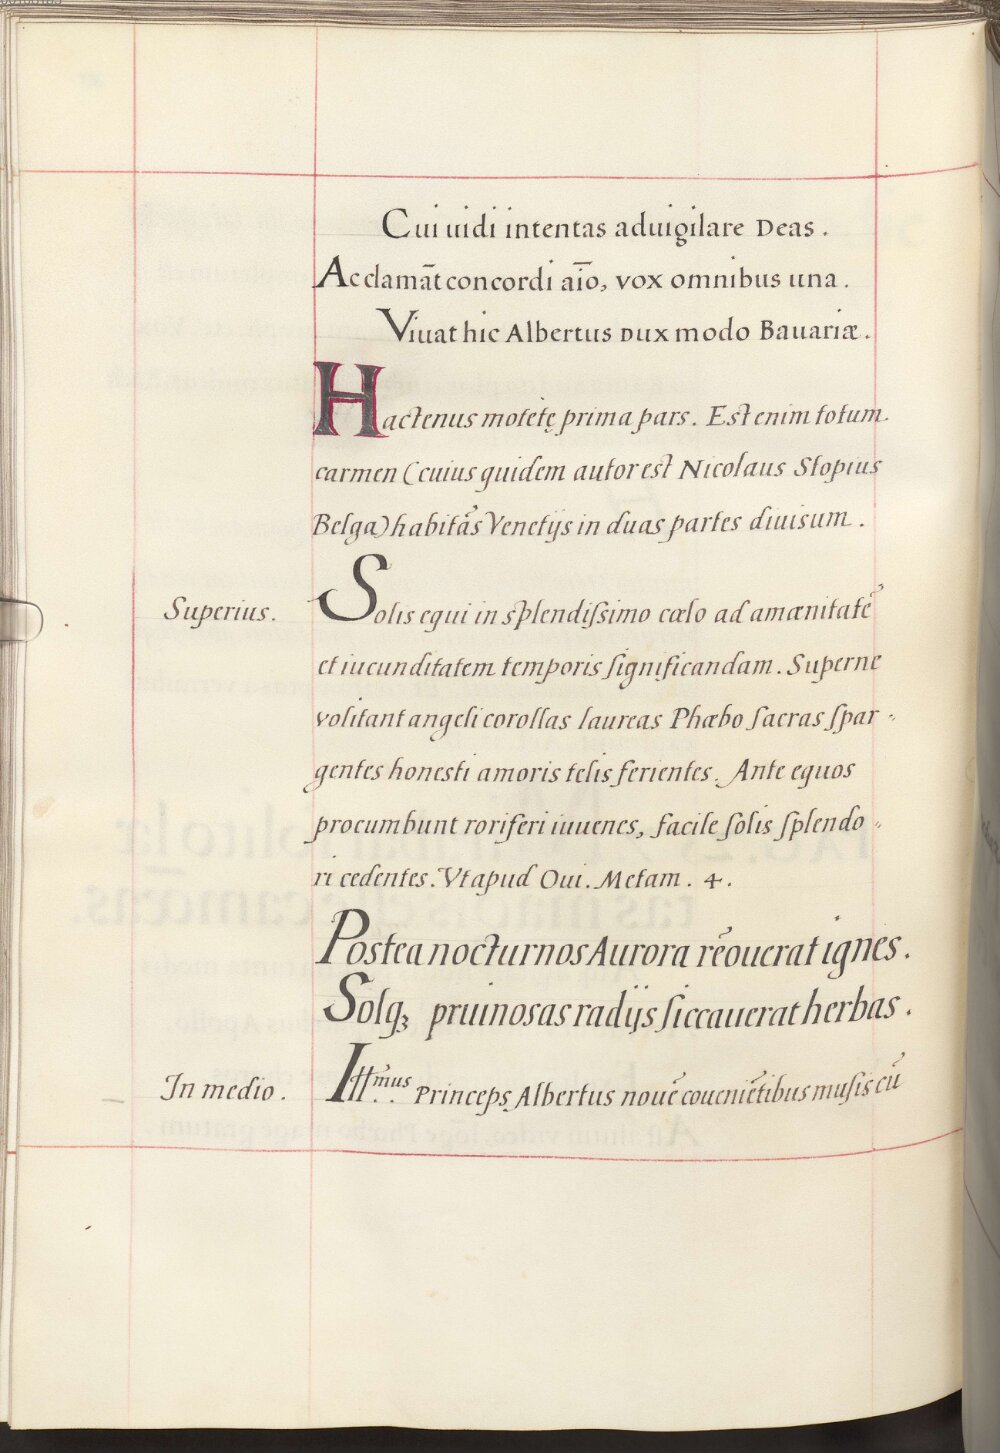 Cui uidi intentas aduigilare Deas.
Acclamāt concordi aīo, vox omnibus una.
Viuat hic Albertus Dux modo Bauariæ.
Hactenus motetę prima pars. Est enim totum
carmen (cuius quidem autor est Nicolaus Stopius
Belga) habitās Venetijs in duas partes diuisum.
Superius. Solis equi in splendiſsimo cœlo ad amœnitatē
et iucunditatem temporis ſignificandam. Superne
volitant angeli corollas laureas Phœbo ſacras ſpar-
gentes honesti amoris telis ferientes. Ante equos
procumbunt roriferi iuuenes, facile ſolis ſplendo-
ri cedentes. Vt apud Oui. Metam. 4.
Postea nocturnos Aurora rēouerat ignes.
Solqꝫ pruinosas radijs ſiccauerat herbas.
In medio. Ill.mus Princeps Albertus nouē cōueniētibus muſis cū